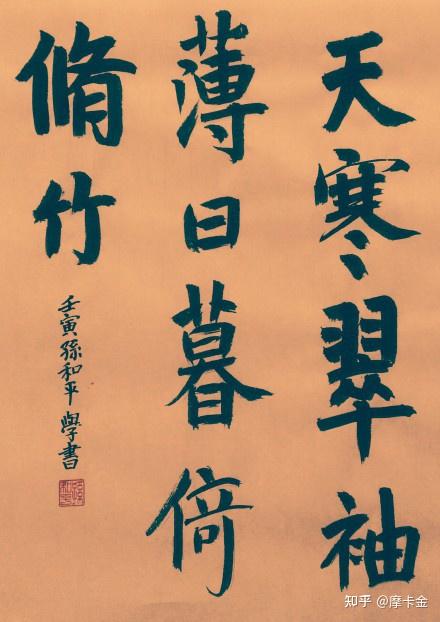 天寒翠袖
薄日暮倚
脩竹
壬寅孫和平學書
知乎 @摩卡金